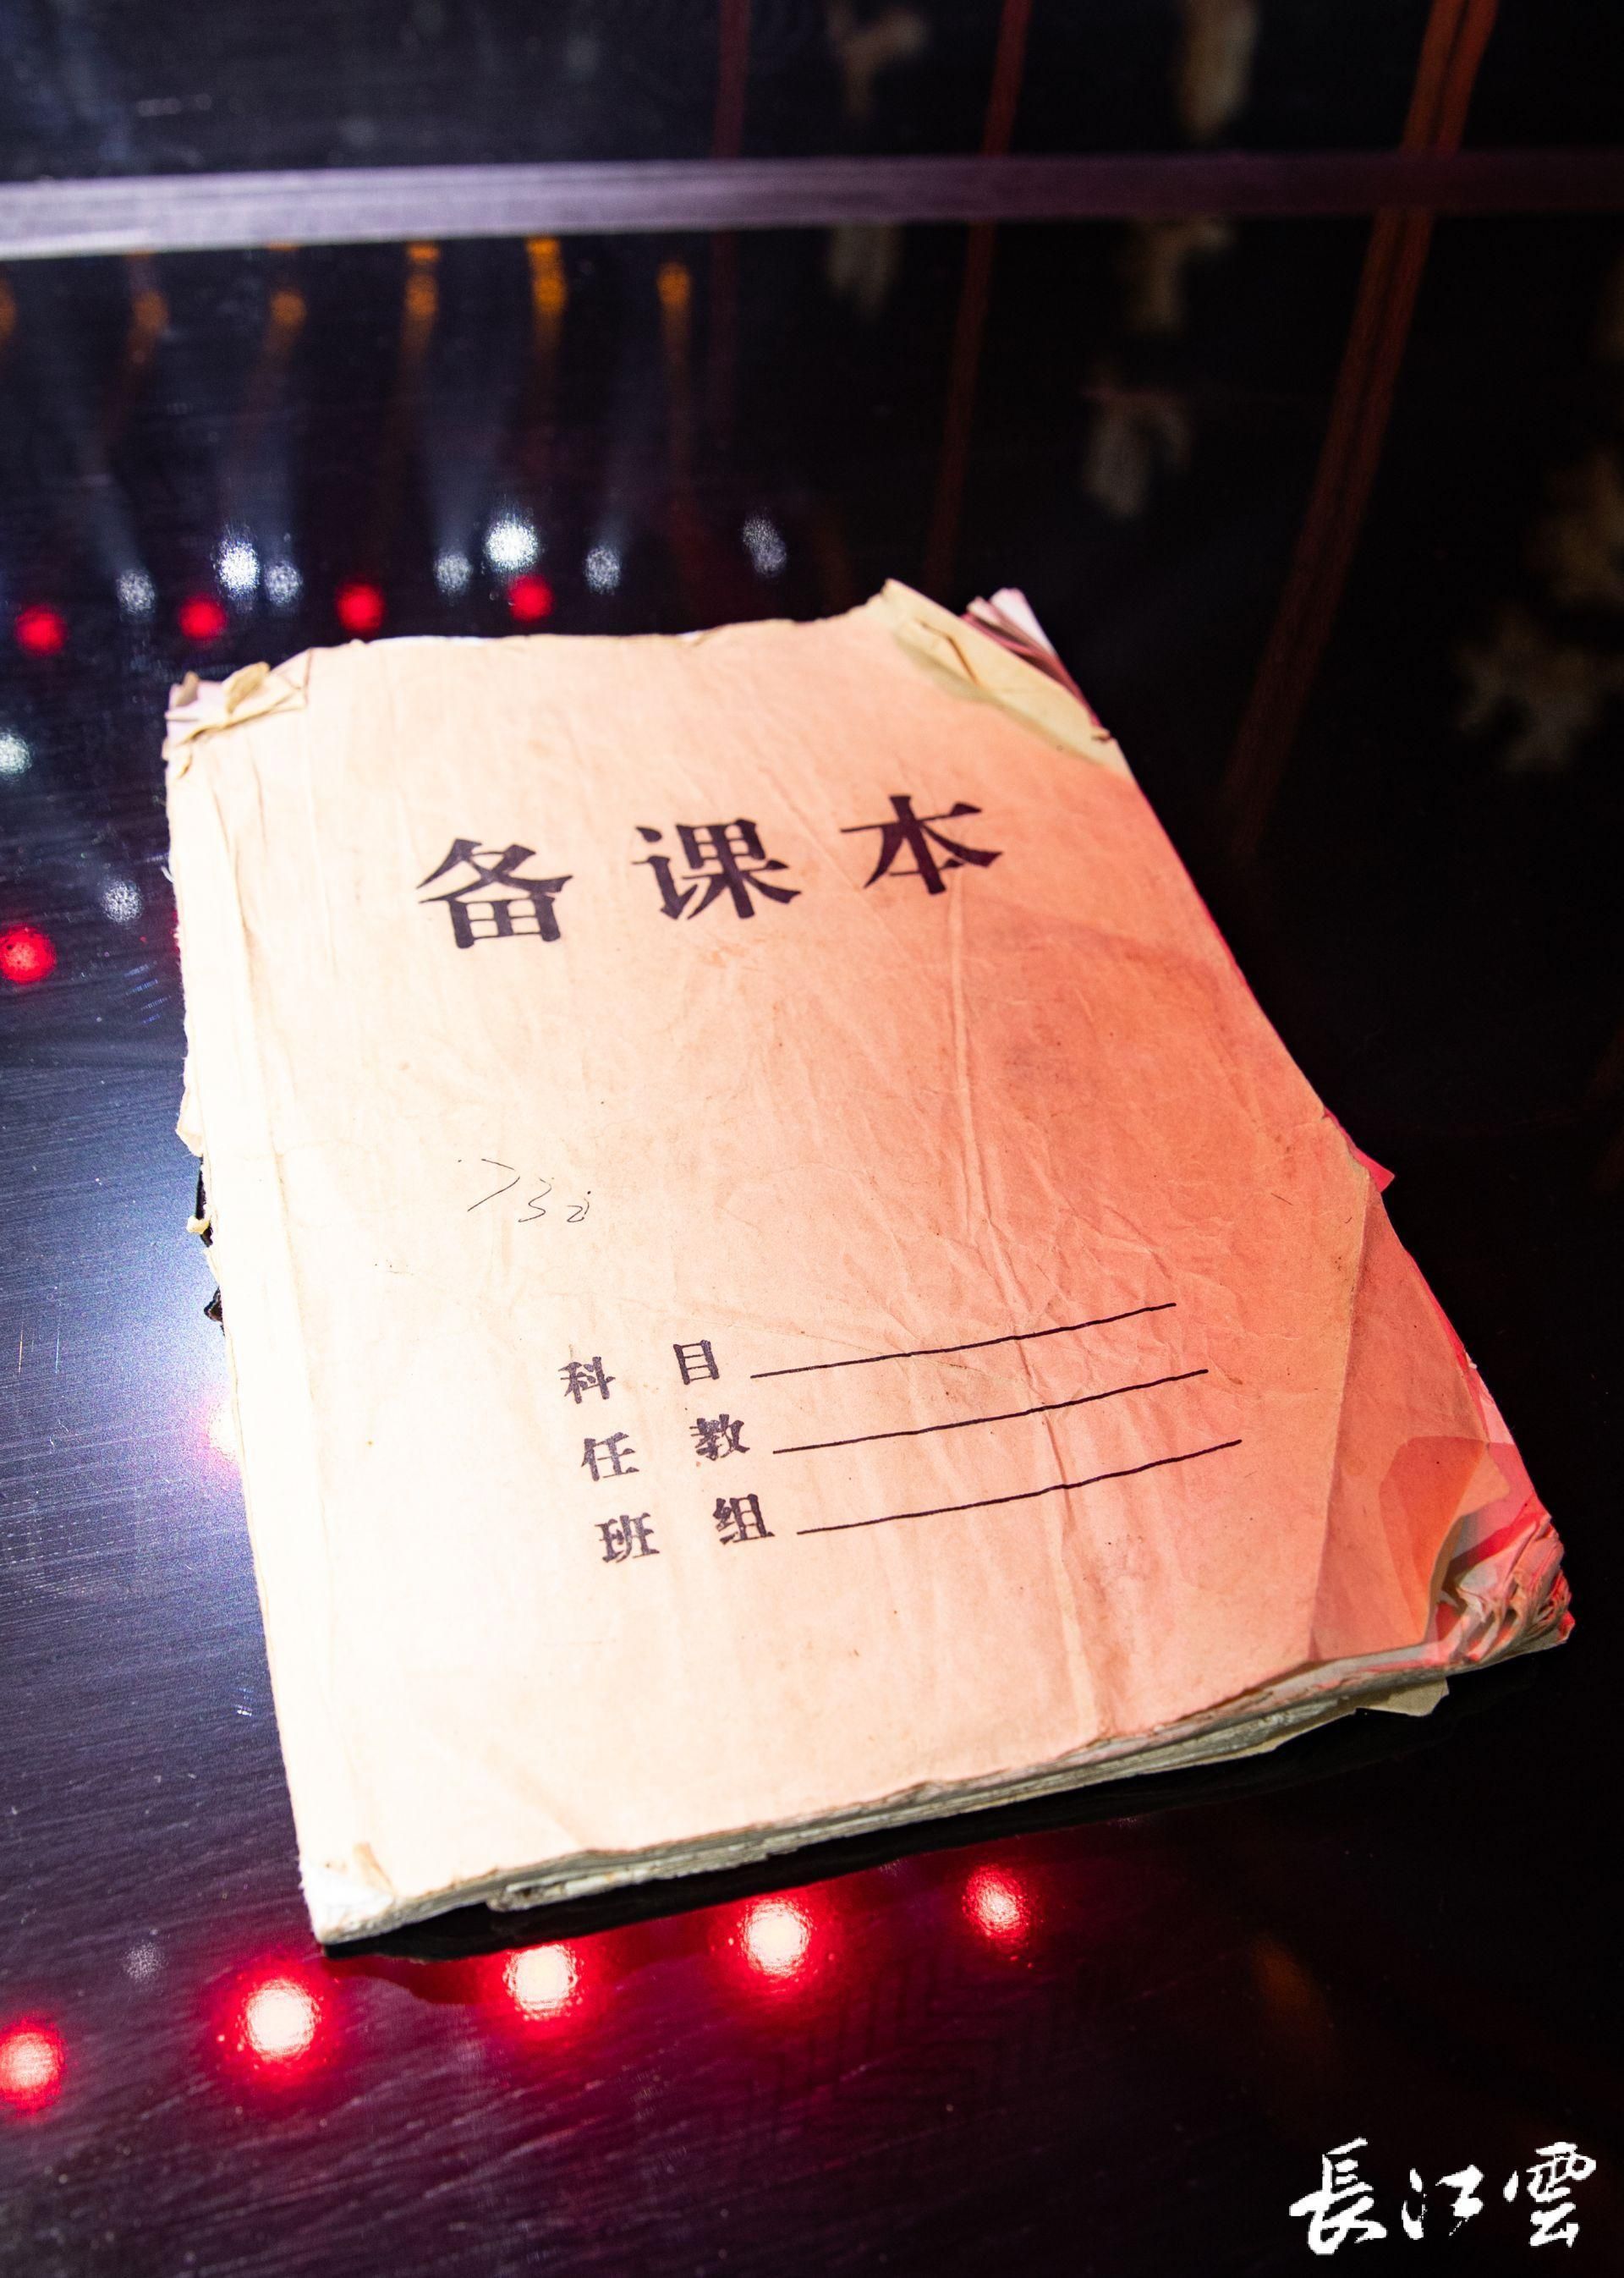 备课本
科目
任教
班组
長江雲